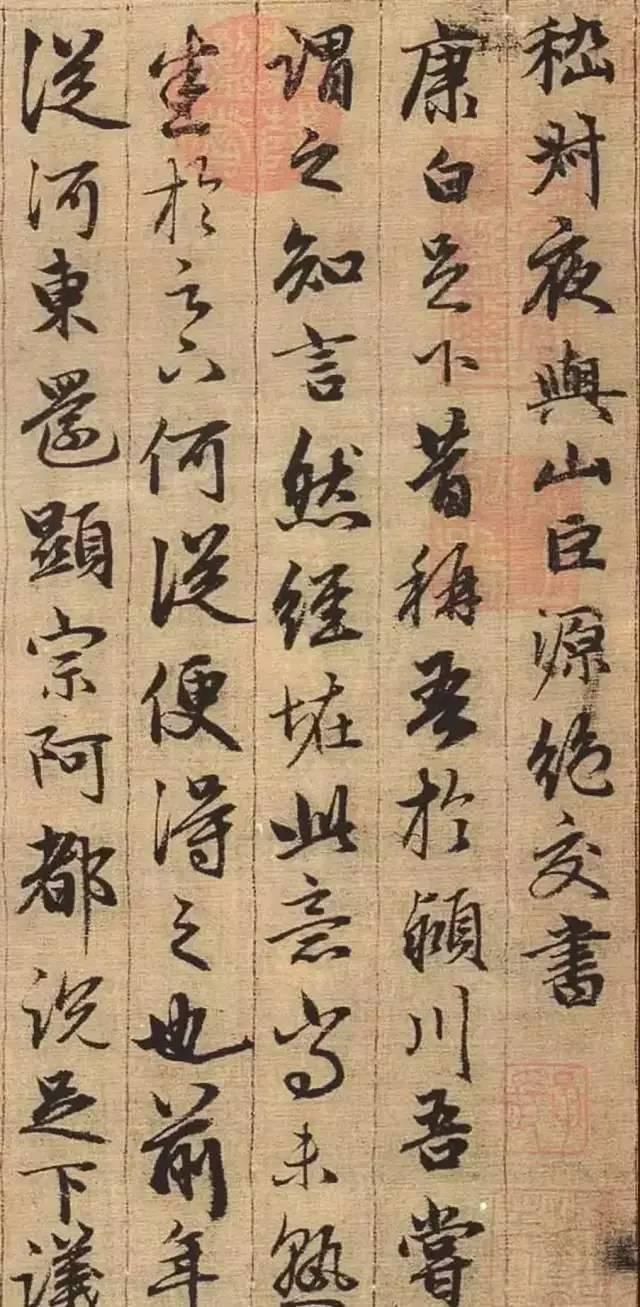 嵇叔夜與山巨源絶交書
康白足下昔稱吾於潁川吾嘗
謂之知言然經恠此意尚未熟
悉於足下何從便得之也前年
從河東還顯宗阿都說足下議